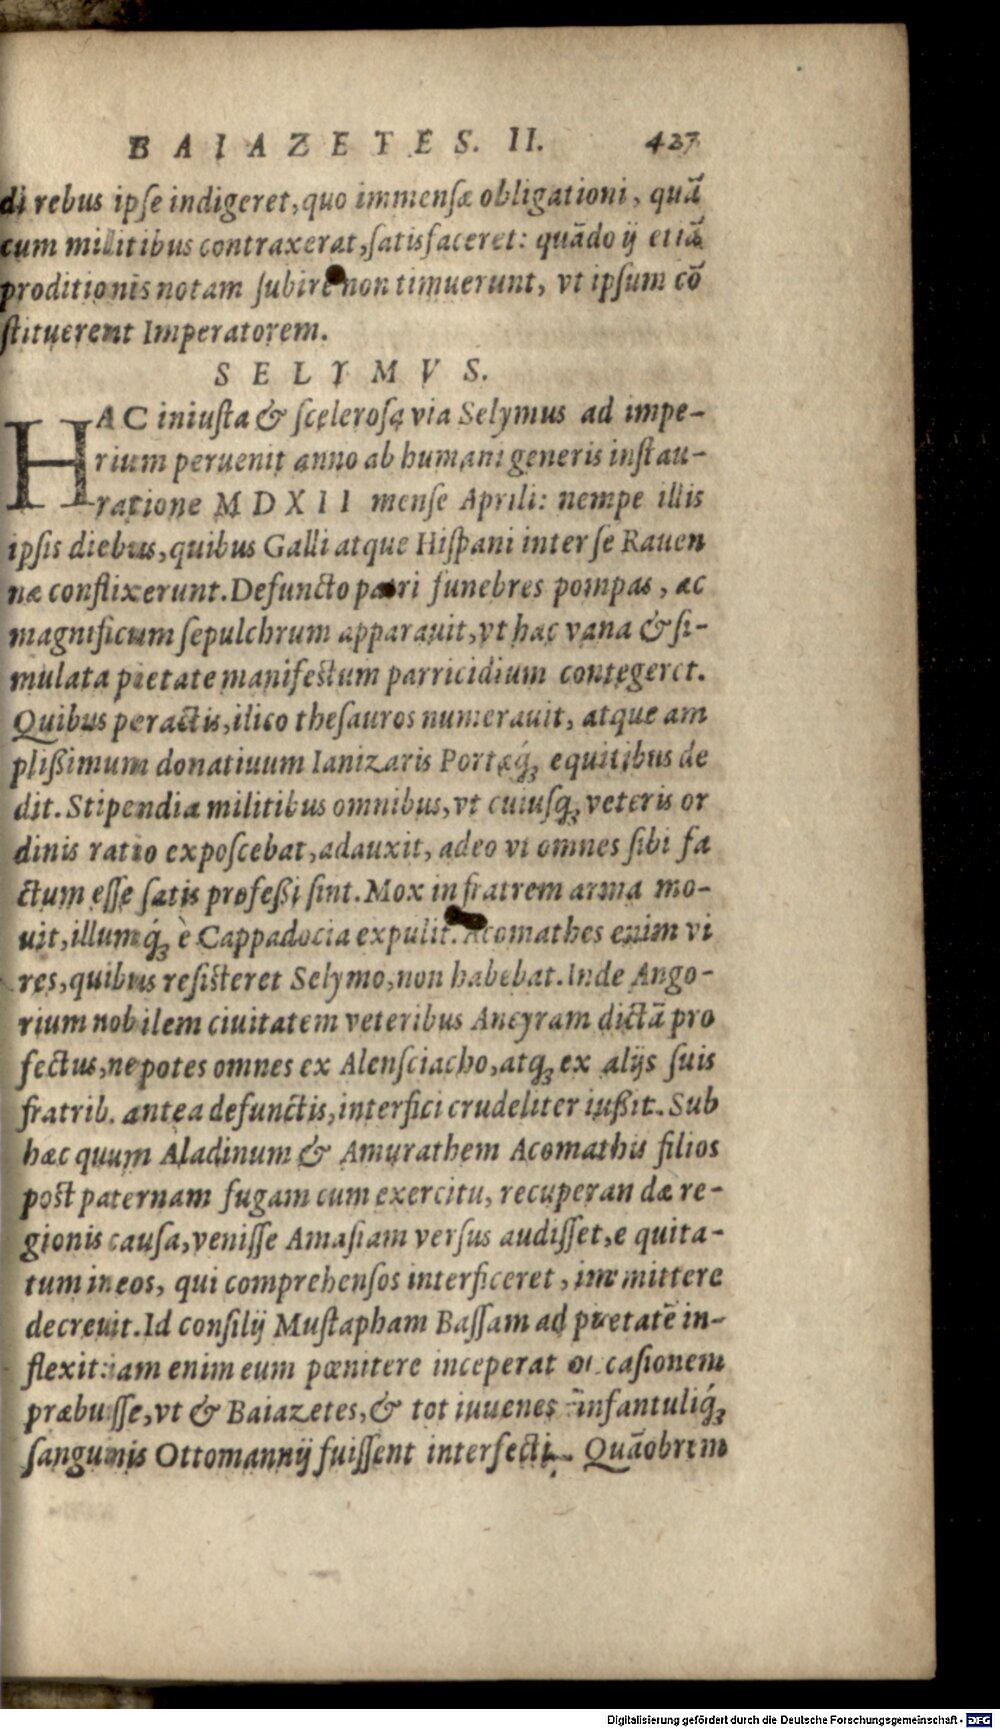 BAIAZETES. II. 427
di rebus ipse indigeret, quo immensæ obligationi, quā
cum militibus contraxerat, satisfaceret: quādo ij etiā
proditionis notam subire non timuerunt, vt ipsum cō
stituerent Imperatorem.
SELYMVS.
HAC iniusta & scelerosa via Selymus ad impe-
rium peruenit anno ab humani generis instau-
ratione MDXII mense Aprili: nempe illis
ipsis diebus, quibus Galli atque Hispani inter se Rauen
næ conflixerunt. Defuncto patri funebres pompas, ac
magnificum sepulchrum apparauit, vt hac vana & si-
mulata pietate manifestum parricidium contegeret.
Quibus peractis, ilico thesauros numerauit, atque am
plißimum donatiuum Ianizaris Portæq́ꝫ equitibus de
dit. Stipendia militibus omnibus, vt cuiusqꝫ veteris or
dinis ratio exposcebat, adauxit, adeo vt omnes sibi fa
ctum esse satis profeßi sint. Mox in fratrem arma mo-
uit, illumq́ꝫ è Cappadocia expulit. Acomathes enim vi
res, quibus resisteret Selymo, non habebat. Inde Ango-
rium nobilem ciuitatem veteribus Ancyram dictā pro
fectus, nepotes omnes ex Alensciacho, atqꝫ ex alijs suis
fratrib. antea defunctis, interfici crudeliter iußit. Sub
hæc quum Aladinum & Amurathem Acomathis filios
post paternam fugam cum exercitu, recuperandæ re-
gionis causa, venisse Amasiam versus audisset, equita-
tum in eos, qui comprehensos interficeret, immittere
decreuit. Id consilij Mustapham Bassam ad pietatē in-
flexit: iam enim eum pœnitere inceperat occasionem
præbuisse, vt & Baiazetes, & tot iuuenes infantuliq́ꝫ
sanguinis Ottomannij fuissent interfecti. Quāobrem
Digitalisierung gefördert durch die Deutsche Forschungsgemeinschaft - DFG